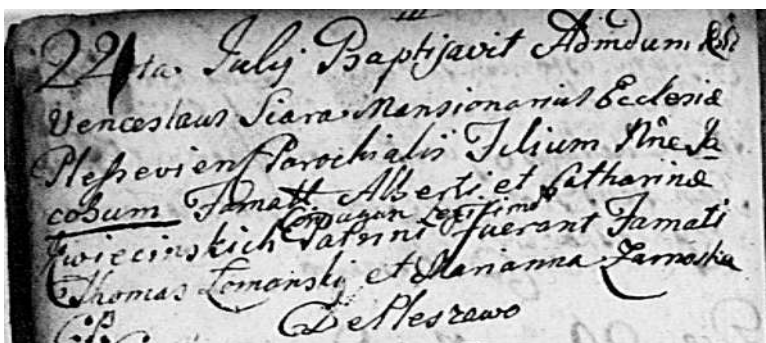 22 ta Julij Baptisavit Admdum Rndz
Venceslaus Siara Mansionarius Ecclesiæ
Plessevien Parochialis Filium Nne Ja
cobum Famatt Alberti et Catharinæ
Conjugum Legitimo
Kwiecinskich Patrini fuerant Famati
Thomas Lomanskj et Marianna Zarnoska
de Pleszewo